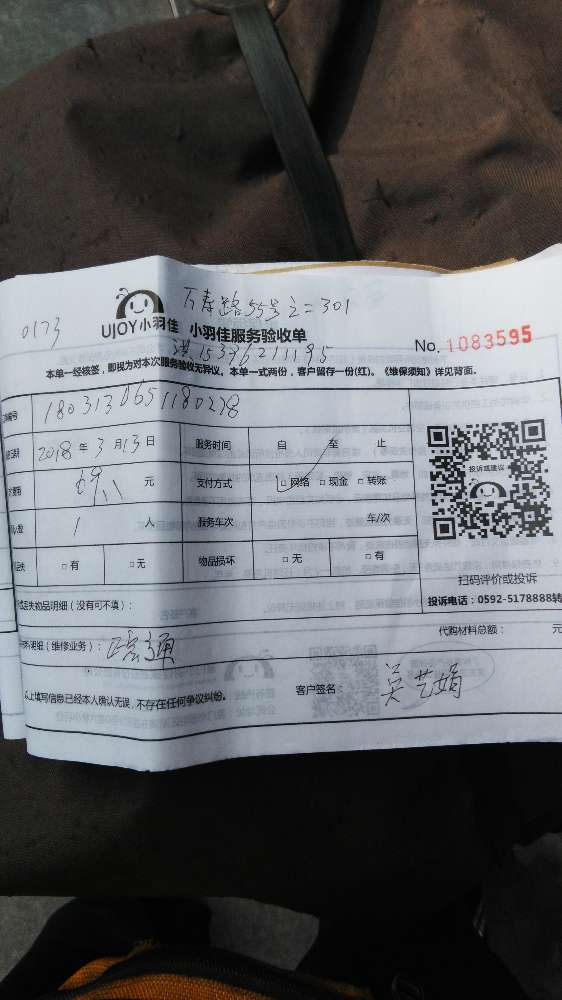 0173
万寿路55号之二301
UJOY小羽佳 小羽佳服务验收单
No. 1083595
本单一经核签，即视为对本次服务验收无异议。本单一式两份，客户留存一份(红)。《维保须知》详见背面。
编号
2018年3月13日 服务时间 自 至 止
元 支付方式 □网络 □现金 □转账
1 人 服务车次 车/次
□有 □无 物品损坏 □无 □有
投诉或建议
扫码评价或投诉
投诉电话：0592-5178888转
失物品明细（没有可不填）：
代购材料总额： 元
明细（维修业务）：
以上填写信息已经本人确认无误，不存在任何争议纠纷。
客户签名： 吴艺娟